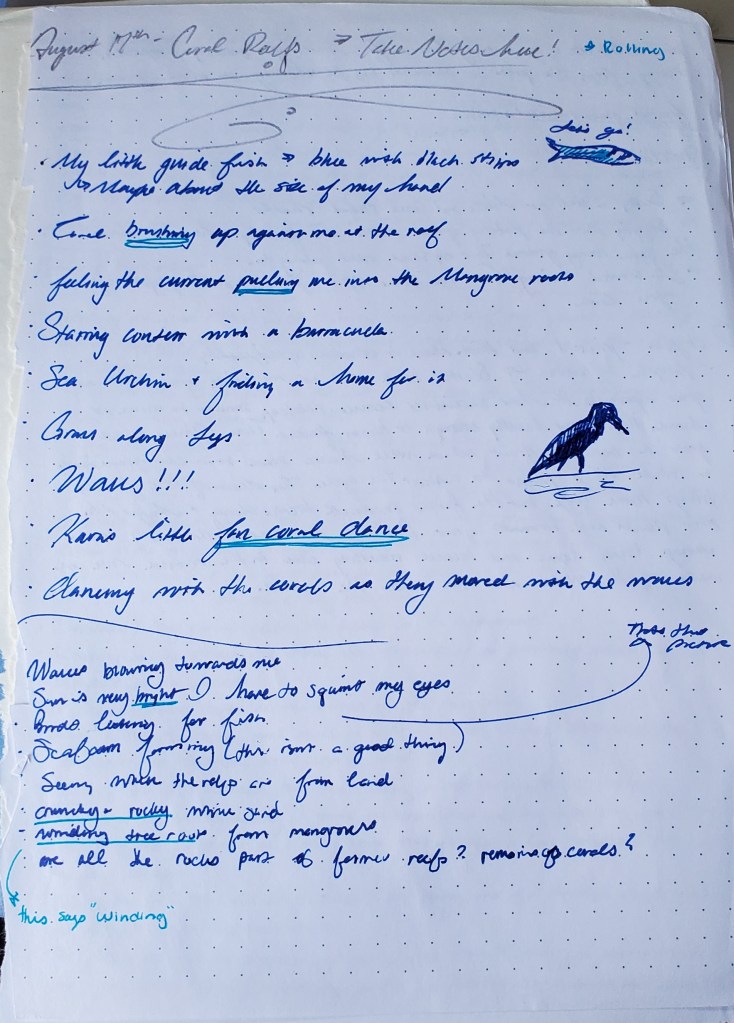 August 17th - Coral Reefs → Take Notes here! * Rolling
Let's go!
· My little guide fish → blue with black strips
↳ Maybe about the size of my hand
· Coral brushing up against me at the reef
· feeling the current pulling me into the Mangrove roots
· Staring contest with a barracuda
· Sea Urchin + finding a home for it
· along legs
· Waves!!!
· little fan coral dance
· Dancing with the corals as they moved with the waves
this picture
Waves towards me
Sun is very bright I have to squint my eyes
· Birds for fish
· Seafoam forming (this isn't a good thing)
Seeing where the reefs are from land
crunchy - rocky white sand
- winding tree roots from mangroves
are all the rocks part of former reefs? remains of corals?
* this says "winding"